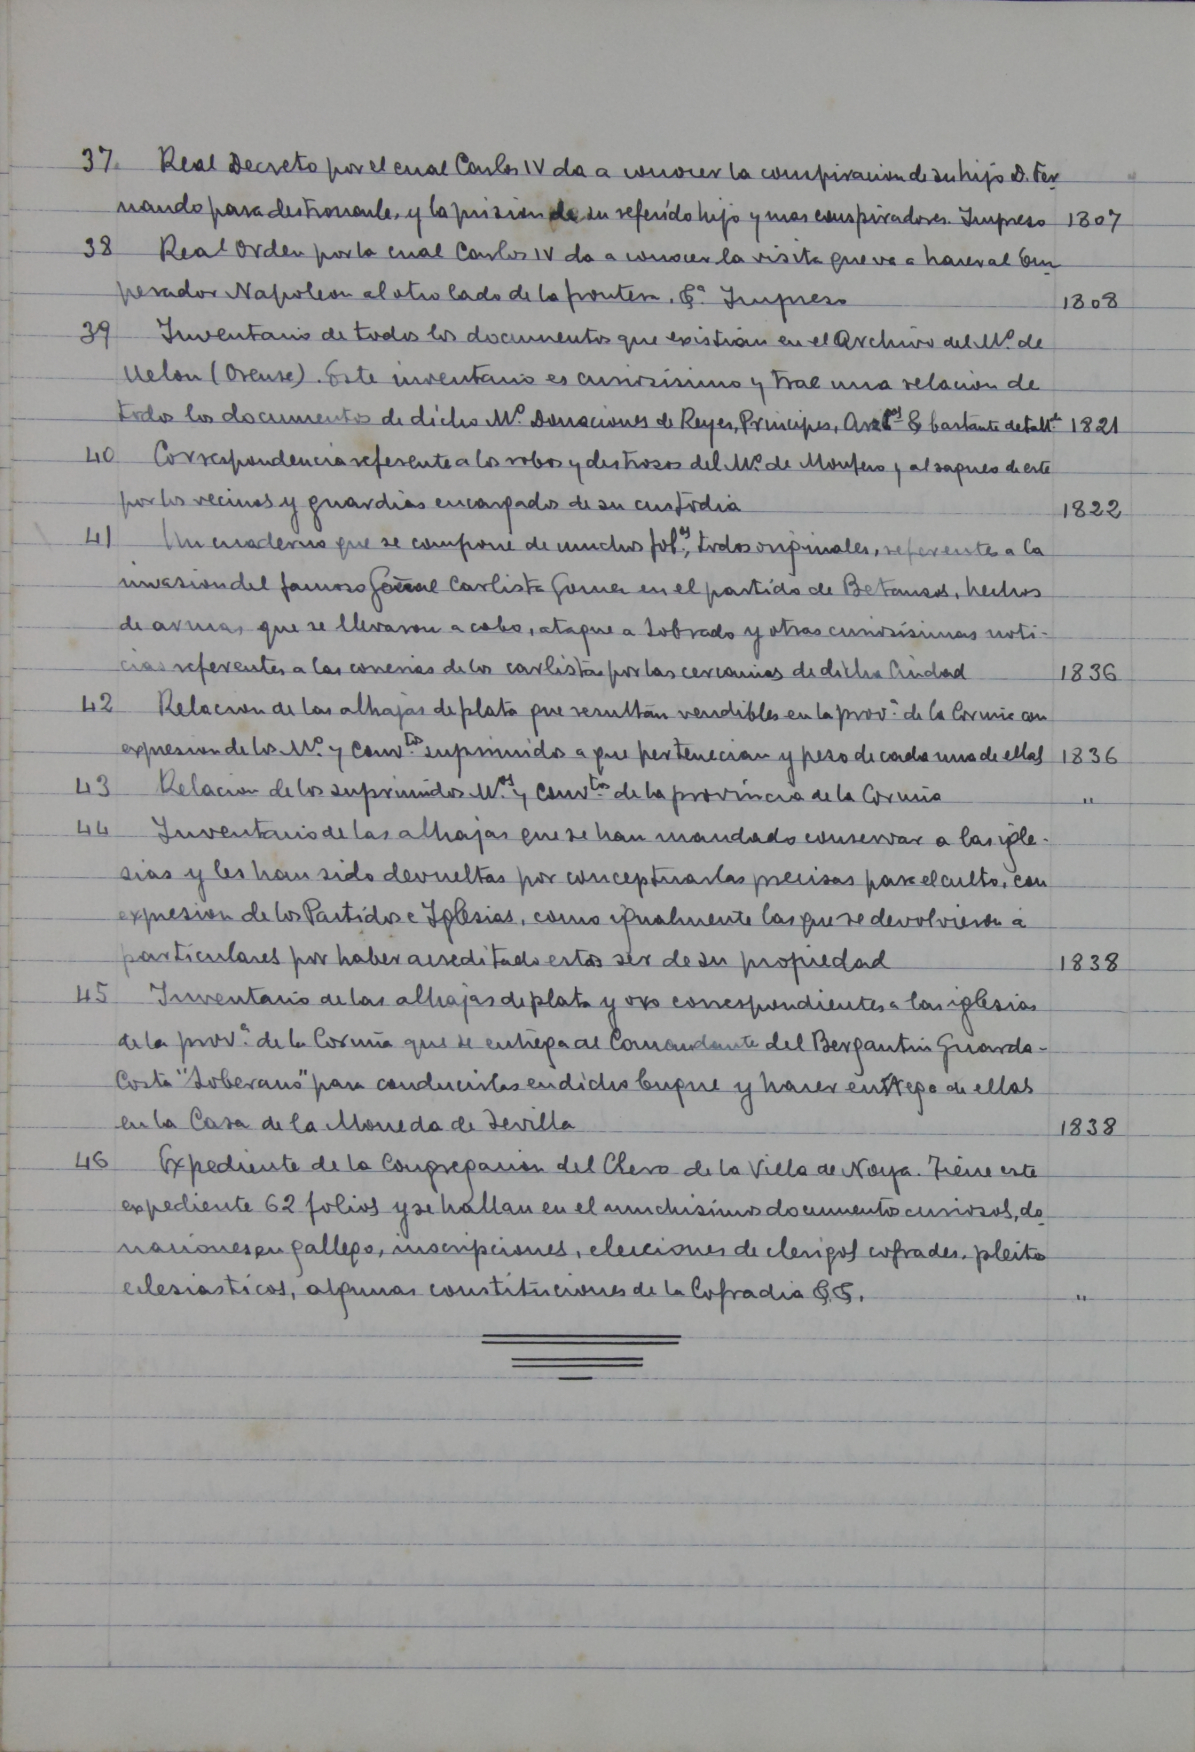 37. Real Decreto por el cual Carlos IV da a conocer la conspiracion de su hijo D. Fer
nando para destronarle, y la prision de su referido hijo y mas conspiradores. Impreso 1807
38 Real Orden por la cual Carlos IV da a conocer la visita que va a hacer al Em
perador Napoleon al otro lado de la frontera, &ª. Impreso 1808
39 Inventario de todos los documentos que existian en el Archivo del Mº. de
Melon (Orense). Este inventario es curiosisimo y trae una relacion de
todos los documentos de dicho Mº. Donaciones de Reyes, Principes, & bastante 1821
40 Correspondencia referente a los robos y destrosos del Mº. de Monfero y al saqueo de este
por los vecinos y guardias encargados de su custodia 1822
41 Un cuaderno que se compone de muchos folˢ, todos originales, referentes a la
invasion del famoso Gēral Carlista Gomez en el partido de Betanzos, hechos
de armas, que se llevaron a cabo, ataque a Sobrado y otras curiosísimas noti-
cias referentes a las correrias de los carlistas por las cercanias de dicha Ciudad 1836
42 Relacion de las alhajas de plata que resultan vendibles en la provª. de la Coruña con
expresion de los Mº. y Convᵗᵒˢ suprimidos a que pertenecian y peso de cada una de ellas 1836
43 Relacion de los suprimidos Mᵒˢ y Convᵗᵒˢ de la provincia de la Coruña "
44 Inventario de las alhajas que se han mandado conservar a las igle-
sias y les han sido devueltas por conceptuarlas precisas para el culto, con
expresion de los Partidos e Iglesias, como igualmente las que se devolvieron a
particulares por haber acreditado estos ser de su propiedad 1838
45 Inventario de las alhajas de plata y oro correspondientes a las iglesias
de la provª. de la Coruña que se entrega al Comandante del Bergantin Guarda-
Costa "Soberano" para conducirlas en dicho buque y hacer entrega de ellas
en la Casa de la Moneda de Sevilla 1838
46 Expediente de la Congregacion del Clero de la Villa de Noya. Tiene este
expediente 62 folios y se hallan en el muchisimos documentos curiosos, do
naciones en gallego, inscripciones, elecciones de clerigos cofrades, pleitos
eclesiasticos, algunas constituciones de la Cofradia &.&. "